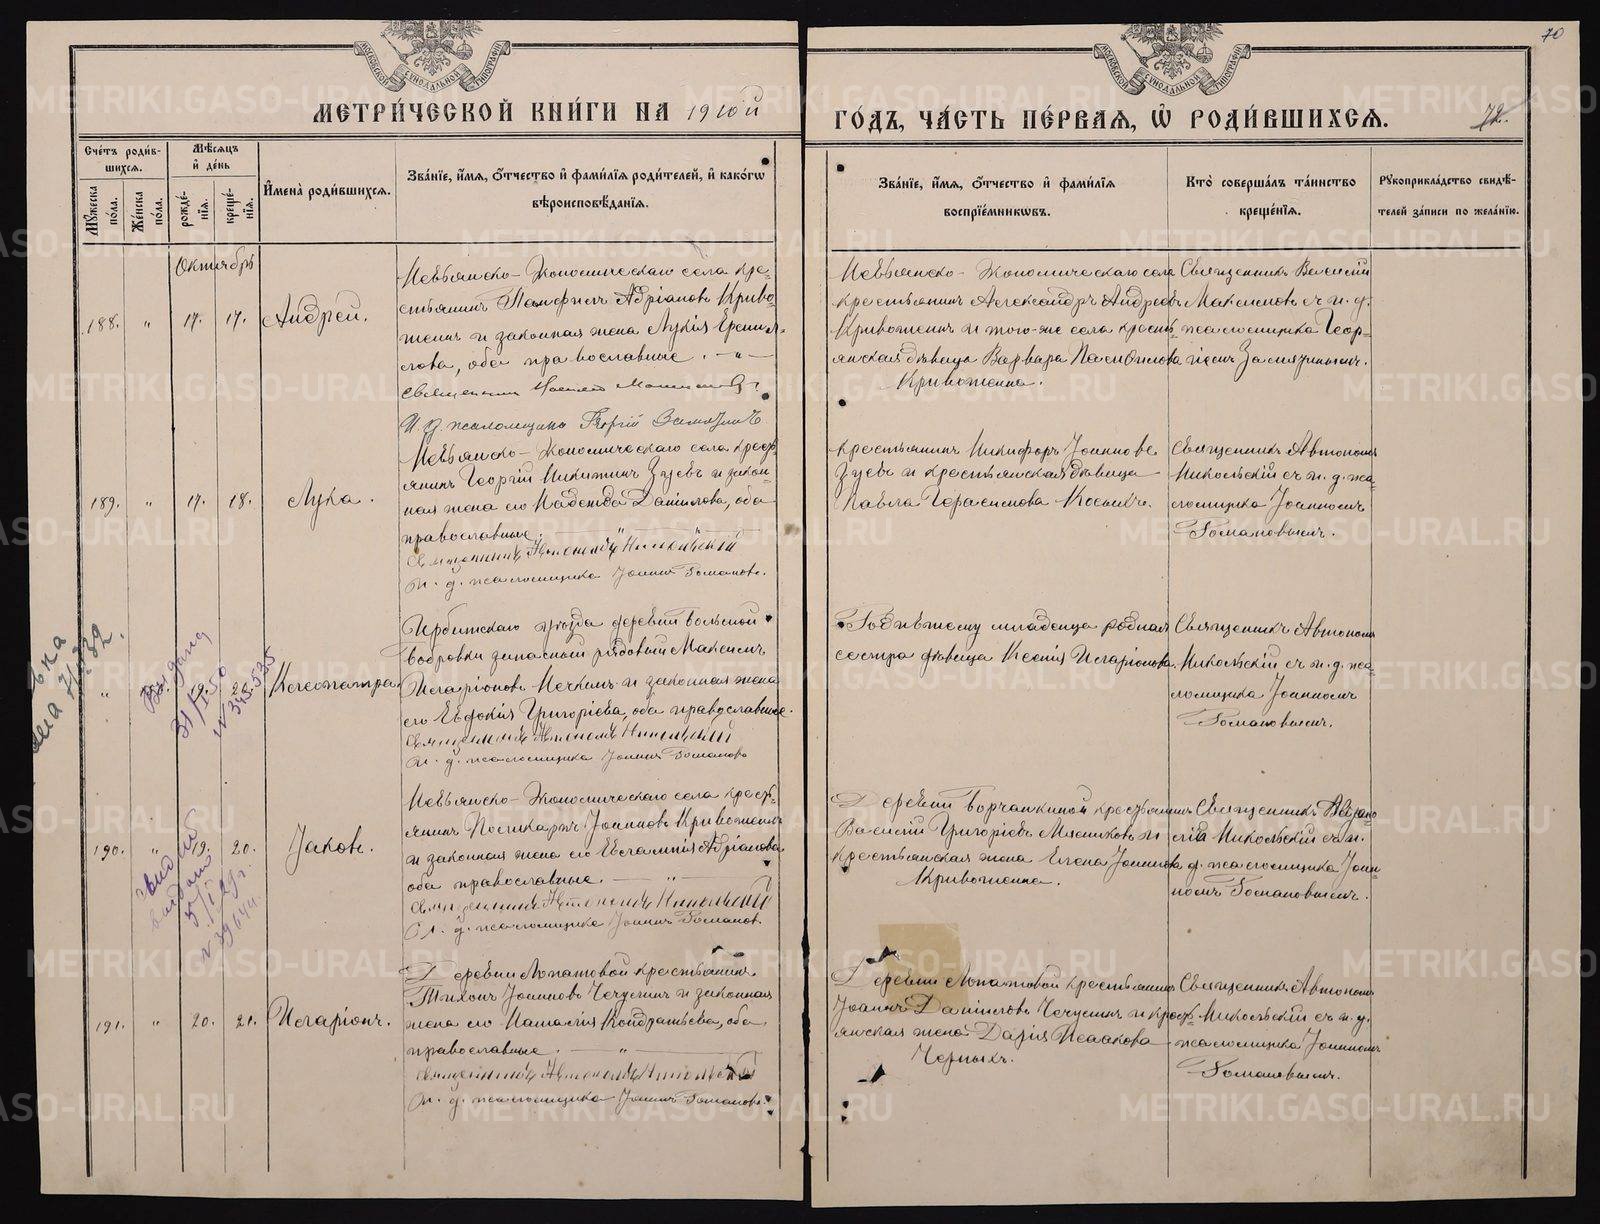 70
МЕТРИ́ЧЕСКОЙ КНИ́ГИ НА 1910й
ГО́ДЪ, ЧА́СТЬ ПЕ́РВАЯ, Ѡ҆ РОДИ́ВШИХСЯ.
72.
Сче́тъ роди́в-
шихся.
Мѣ́сяцъ
и҆ де́нь
Мꙋ́жеска
по́ла.
Же́нска
по́ла.
рожде́-
нїя.
креще́-
нїя.
И҆мена̀ роди́вшихся.
Зва́нїе, и҆́мя, ѻ҆́тчество и҆ фами́лїя роди́телей, и҆ како́гѡ
вѣроисповѣ́данїя.
Зва́нїе, и҆́мя, ѻ҆́тчество и҆ фами́лїя
воспрїе́мникѡвъ.
Кто̀ соверша́лъ та́инство
креще́нїя.
Рꙋкоприкла́дство свидѣ́-
телей за́писи по жела́нїю.
Октябрь
188. " 17. 17. Андрей.
Невьянско-Экономическаго села кре-
стьянинъ Памфилъ Адріановъ Криво-
женинъ и законная жена Лукія Ермил-
лова, оба православные. - " -
Священникъ Василій Максимовъ
И. д. псаломщика Георгій Замятинъ
Невьянско-Экономическаго села
крестьянинъ Александръ Андреевъ
Кривоженинъ и того-же села кресть-
янская дѣвица Варвара Памфилова
Кривоженина.
Священникъ Василій
Максимовъ съ и. д.
псаломщика Геор-
гіемъ Замятинымъ.
189. " 17. 18. Лука.
Невьянско-Экономическаго села кресть-
янинъ Георгій Никитинъ Зуевъ и закон-
ная жена его Надежда Даніилова, оба
православные. - " -
Священникъ Автономъ Никольскій
и. д. псаломщика Іоаннъ Романовъ.
Крестьянинъ Никифоръ Іоанновъ
Зуевъ и крестьянская дѣвица
Павла Герасимова Косыхъ.
Священникъ Автономъ
Никольскій съ и. д. пса-
ломщика Іоанномъ
Романовымъ.
Выдано
31/
N 345.535
N 332.
" Клеопатра.
Ирбитскаго уѣзда деревни Большой
Бобровки запасный рядовой Максимъ
Иларіоновъ Мечкинъ и законная жена
его Евдокія Григоріева, оба православные.
Священникъ Автономъ Никольскій
и. д. псаломщика Іоаннъ Романовъ
Родившему младенца родная
сестра дѣвица Ксенія Иларіонова.
Священникъ Автономъ
Никольскій съ и. д. пса-
ломщика Іоанномъ
Романовымъ.
190. " 19. 20. Іаковъ.
выдано
5/I 29г.
N 39644.
Невьянско-Экономическаго села кресть-
янинъ Поликарпъ Іоанновъ Кривоженинъ
и законная жена его Евлампія Адріанова
оба православные. - " -
Священникъ Автономъ Никольскій
И. д. псаломщика Іоаннъ Романовъ.
Деревни Борчаниной крестьянинъ
Василій Григоріевъ Мясниковъ и
крестьянская жена Елена Іоаннова
Кривоженина.
Священникъ
Никольскій съ и.
д. псаломщика Іоан-
номъ Романовымъ.
191. " 20. 21. Иларіонъ.
Деревни Лопатовой крестьянинъ
Тихонъ Іоанновъ Чечулинъ и законная
жена его Наталія Кондратьева, оба
православные. - " -
Священникъ Автономъ Никольскій
И. д. псаломщика Іоаннъ Романовъ.
Деревни Лопатовой крестьянинъ
Іоаннъ Даніиловъ Чечулинъ и крест-
янская жена Дарія Исаакова
Черныхъ.
Священникъ Автономъ
Никольскій съ и. д.
псаломщика Іоанномъ
Романовымъ.
METRIKI.GASO-URAL.RU